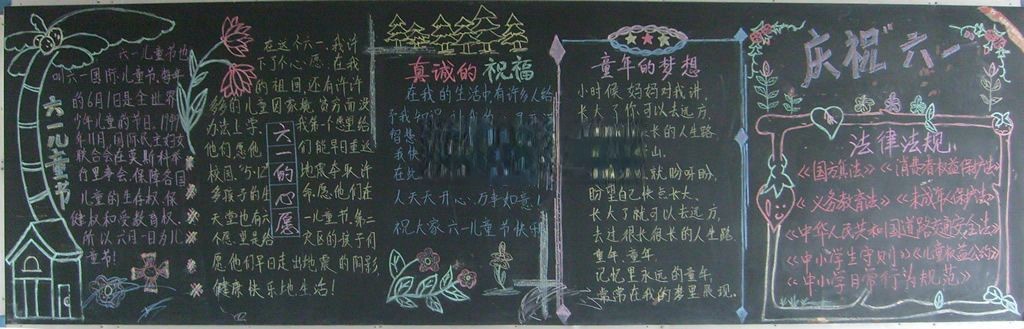 六一儿童节
六一儿童节也
叫六一国际儿童节,每年
的6月1日是全世界
少年儿童的节日。1949
年11月,国际民主妇女
联合会在莫斯科举
行理事会,保障各国
儿童的生存权、保
健权和受教育权。
所以六月一日为儿
童节!
六一的心愿
在这个六一,我许
下了个心愿,在我
的祖国,还有许许
多多的儿童因家庭贫穷而没
办法上学,我第一个愿望给
他们,愿他们能早日重返
校园。"5.12"地震夺取许
多孩子的生命,愿他们在
天堂也有六一儿童节。第二
个愿望是给灾区的孩子们
愿他们早日走出地震的阴影
健康快乐地生活!
真诚的祝福
在我的生活中有许多人给
予我知识
智慧
我快
在此
人天天开心,万事如意!
祝大家六一儿童节快乐
童年的梦想
小时候,妈妈对我讲
长大了你可以去远方,
长的人生路
山,
就盼呀盼,
盼望自己快点长大,
长大了就可以去远方,
去过很长很长的人生路
童年,童年
记忆里永远的童年,
常常在我的梦里展现。
庆祝"六一
法律法规
《国旗法》《消费者权益保护法》
《义务教育法》《未成年保护法》
《中华人民共和国道路交通安全法》
《中小学生守则》《儿童权益公约》
《中小学日常行为规范》